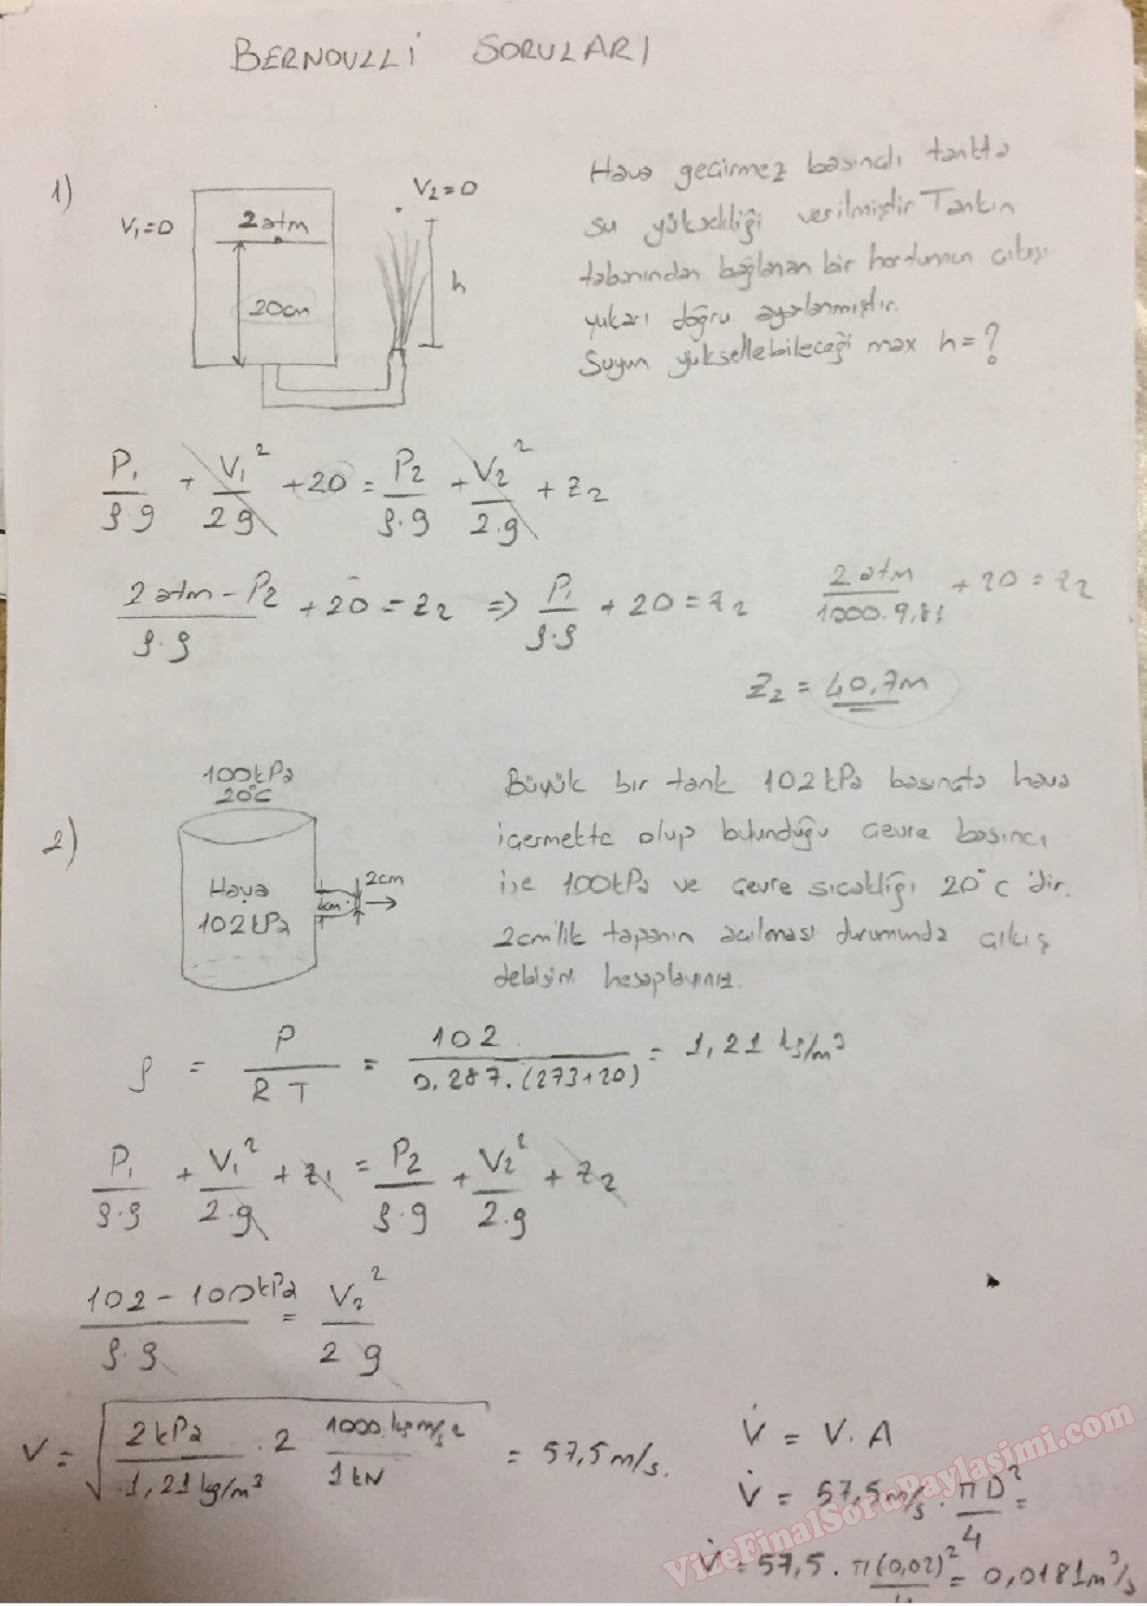 BERNOULLİ SORULARI
1)
V₁=0
2 atm
20cm
V₂=0
h
Hava geçirmez basınçlı tankta
su yüksekliği verilmiştir Tankın
tabanından bağlanan bir hortumun çıkışı
yukarı doğru ayarlanmıştır.
Suyun yükselebileceği max h=?
P₁/ρ.g + V₁²/2g + 20 = P₂/ρ.g + V₂²/2.g + z₂
2 atm - P₂/ρ.g + 20 = z₂ ⇒ P₁/ρ.g + 20 = z₂
2 atm/1000.9,81 + 20 = z₂
Z₂ = 40,7m
2)
100kPa
20°C
Hava
102kPa
4cm
2cm
Büyük bir tank 102 kPa basınçta hava
içermekte olup bulunduğu çevre basıncı
ise 100kPa ve çevre sıcaklığı 20°C 'dir.
2cm'lik tapanın açılması durumunda çıkış
debisini hesaplayınız.
ρ = P/RT = 102/0.287.(273+20) = 1,21 kg/m³
P₁/ρ.g + V₁²/2.g + z₁ = P₂/ρ.g + V₂²/2.g + z₂
102 - 100kPa/ρ.g = V₂²/2g
V = √(2kPa/1,21 kg/m³ . 2 1000.kgm/s²/1kN) = 57,5 m/s.
V̇ = V.A
V̇ = 57,5m/s . πD²/4 =
V̇ = 57,5 . π(0,02)²/4 = 0,0181m³/s
VizeFinalSoruPaylasimi.com